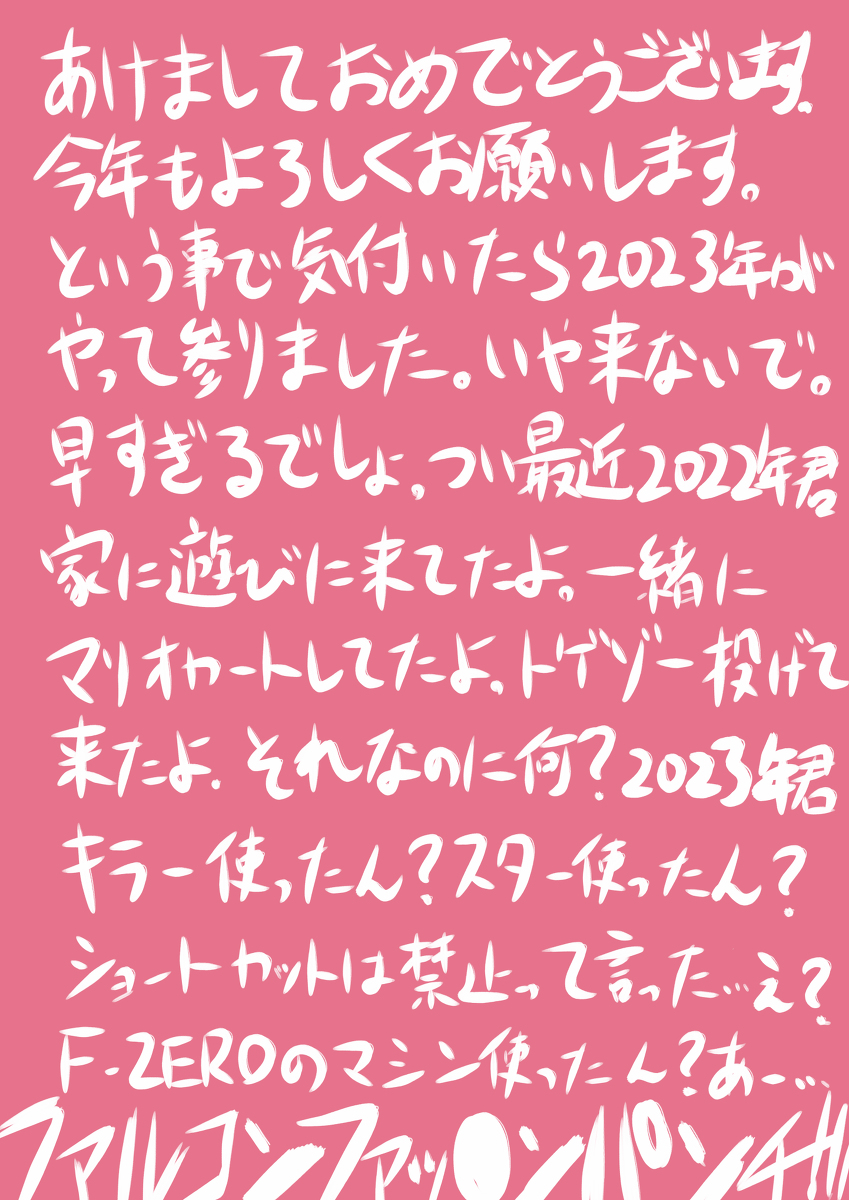 あけましておめでとうございます.
今年もよろしくお願いします。
という事で気付いたら2023年が
やって参りました。いや来ないで。
早すぎるでしょ,つい最近2022年君
家に遊びに来てたよ。一緒に
マリオカートしてたよ。トゲゾー投げて
来たよ.それなのに何?2023年君
キラー使ったん?スター使ったん?
ショートカットは禁止って言った…え?
F-ZEROのマシン使ったん?あー…
ファルコンファッ●ンパンチ!!!